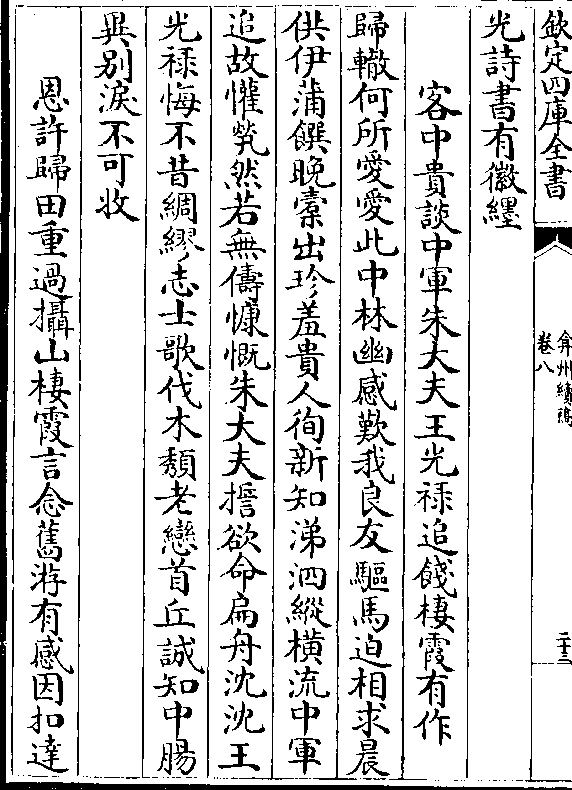 欽定四庫全書
弇州續稿
卷八
二十三
光詩書有徽纆
客中貴談中軍朱大夫王光祿追餞棲霞有作
歸轍何所愛愛此中林幽感歎我良友驅馬迫相求晨
供伊蒲饌晚橐出珍羞貴人徇新知涕泗縱橫流中軍
追故懽煢然若無儔慷慨朱大夫擔欲命扁舟沈沈王
光祿悔不昔綢繆志士歌伐木頹老戀首丘誠知中腸
異别淚不可收
恩許歸田重過攝山棲霞言念舊游有感因扣達